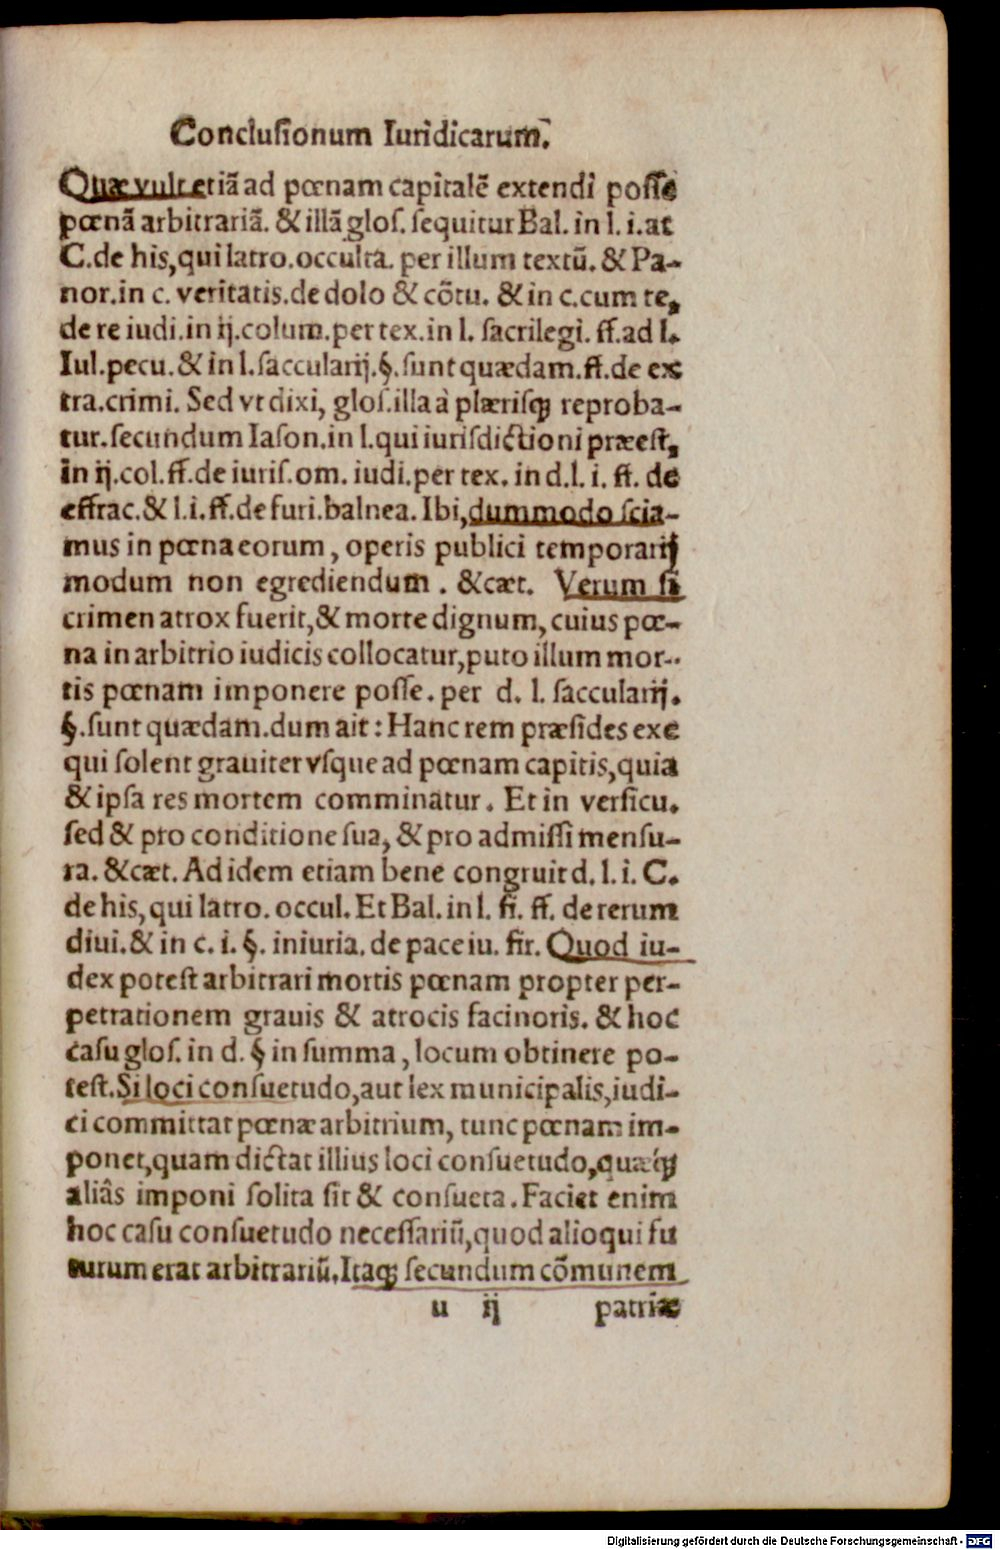 Conclusionum Iuridicarum.
Quæ vult etiā ad pœnam capitalē extendi posse
pœnā arbitrariā. & illā glos. sequitur Bal. in l. i. at
C. de his, qui latro. occulta. per illum textū. & Pa-
nor. in c. veritatis. de dolo & cōtu. & in c. cum te,
de re iudi. in ij. colum. per tex. in l. sacrilegi. ff. ad l.
Iul. pecu. & in l. saccularij. §. sunt quædam. ff. de ex
tra. crimi. Sed vt dixi, glos. illa à plærisq; reproba-
tur. secundum Iason. in l. qui iurisdictioni præest,
in ij. col. ff. de iuris. om. iudi. per tex. in d. l. i. ff. de
effrac. & l. i. ff. de furi. balnea. Ibi, dummodo scia-
mus in pœna eorum, operis publici temporarij
modum non egrediendum. &cæt. Verum si
crimen atrox fuerit, & morte dignum, cuius pœ-
na in arbitrio iudicis collocatur, puto illum mor-
tis pœnam imponere posse. per d. l. saccularij.
§. sunt quædam. dum ait: Hanc rem præsides exe
qui solent grauiter vsque ad pœnam capitis, quia
& ipsa res mortem comminatur. Et in versicu.
sed & pro conditione sua, & pro admissi mensu-
ra. &cæt. Ad idem etiam bene congruit d. l. i. C.
de his, qui latro. occul. Et Bal. in l. fi. ff. de rerum
diui. & in c. i. §. iniuria. de pace iu. fir. Quod iu-
dex potest arbitrari mortis pœnam propter per-
petrationem grauis & atrocis facinoris. & hoc
casu glos. in d. § in summa, locum obtinere po-
test. Si loci consuetudo, aut lex municipalis, iudi-
ci committat pœnæ arbitrium, tunc pœnam im-
ponet, quam dictat illius loci consuetudo, quæq;
aliâs imponi solita sit & consueta. Faciet enim
hoc casu consuetudo necessariū, quod alioqui fu
turum erat arbitrariū. Itaq; secundum cōmunem
u ij patriæ
Digitalisierung gefördert durch die Deutsche Forschungsgemeinschaft - DFG